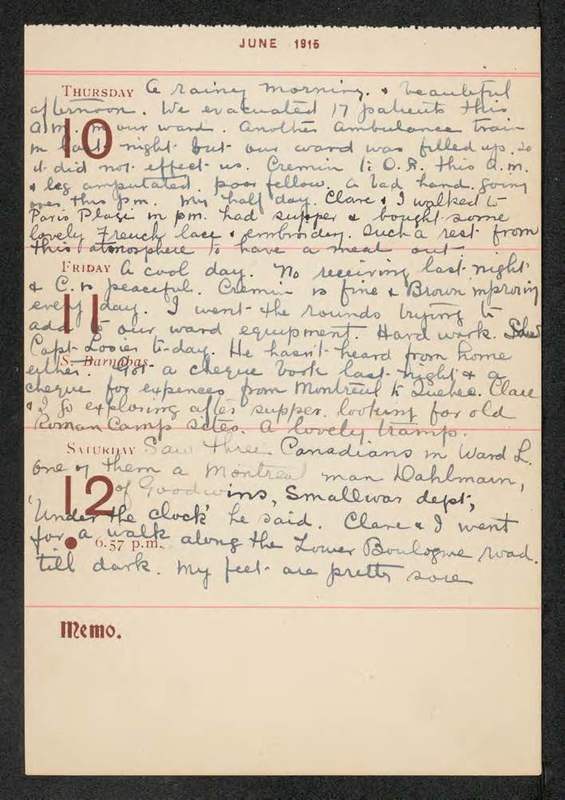 JUNE 1915
THURSDAY A rainy morning. & beautiful
afternoon. We evacuated 17 patients this
a.m. in our ward. Another ambulance train
in last night but our ward was filled up. so
it did not effect us. Cremin 1: O.R. this a.m.
10
& leg amputated. poor fellow. A bad hand. going
over this p.m. My half day. Clare & I walked to
Paris Plage in p.m. had supper & bought some
lovely French lace & embroidery. Such a rest from
this atmosphere to have a meal out
FRIDAY A cool day. No receiving last night
& C. is peaceful. Cremin is fine & Brown improving
every day. I went the rounds trying to
11
add to our ward equipment. Hard work.
Capt. to-day. He hasn't heard from home
S. Barnabas
either. Got a cheque book last night & a
cheque for expences from Montreuil to Quebec. Clare
& I go exploring after supper. looking for old
Roman Camp sites. A lovely tramp.
SATURDAY Saw three Canadians in Ward L.
one of them a Montreal man Dahlmain,
of Goodwins, Smallwar dept,
12
'Under the clock' he said. Clare & I went
for a walk along the Lower Boulogne road.
6.57 p.m.
till dark. My feet are pretty sore
Memo.